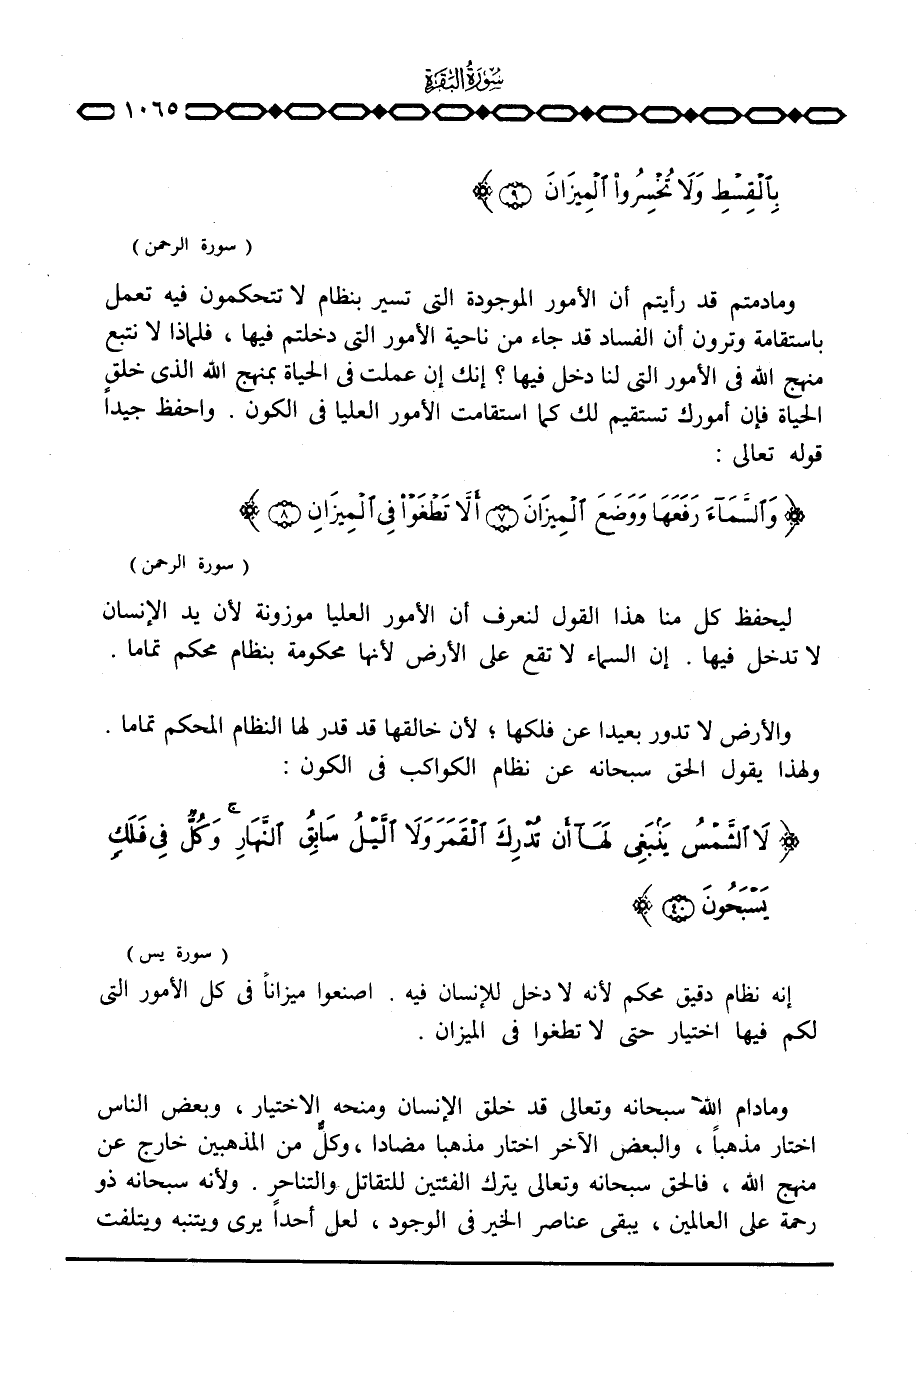 سُورَةُ البَقَرَةِ
١٠٦٥
بِٱلْقِسْطِ وَلَا تُخْسِرُوا۟ ٱلْمِيزَانَ ﴿٩﴾ ﴾
( سورة الرحمن )
ومادمتم قد رأيتم أن الأمور الموجودة التى تسير بنظام لا تتحكمون فيه تعمل
باستقامة وترون أن الفساد قد جاء من ناحية الأمور التى دخلتم فيها ، فلماذا لا نتبع
منهج الله فى الأمور التى لنا دخل فيها ؟ إنك إن عملت فى الحياة بمنهج الله الذى خلق
الحياة فإن أمورك تستقيم لك كما استقامت الأمور العليا فى الكون . واحفظ جيداً
قوله تعالى :
﴿ وَٱلسَّمَآءَ رَفَعَهَا وَوَضَعَ ٱلْمِيزَانَ ﴿٧﴾ أَلَّا تَطْغَوْا۟ فِى ٱلْمِيزَانِ ﴿٨﴾ ﴾
( سورة الرحمن )
ليحفظ كل منا هذا القول لنعرف أن الأمور العليا موزونة لأن يد الإنسان
لا تدخل فيها . إن السماء لا تقع على الأرض لأنها محكومة بنظام محكم تماما .
والأرض لا تدور بعيدا عن فلكها ؛ لأن خالقها قد قدر لها النظام المحكم تماما .
ولهذا يقول الحق سبحانه عن نظام الكواكب فى الكون :
﴿ لَا ٱلشَّمْسُ يَنۢبَغِى لَهَآ أَن تُدْرِكَ ٱلْقَمَرَ وَلَا ٱلَّيْلُ سَابِقُ ٱلنَّهَارِ ۚ وَكُلٌّ فِى فَلَكٍ
يَسْبَحُونَ ﴿٤٠﴾ ﴾
( سورة يس )
إنه نظام دقيق محكم لأنه لا دخل للإنسان فيه . اصنعوا ميزاناً فى كل الأمور التى
لكم فيها اختيار حتى لا تطغوا فى الميزان .
ومادام الله سبحانه وتعالى قد خلق الإنسان ومنحه الاختيار ، وبعض الناس
اختار مذهباً ، والبعض الآخر اختار مذهبا مضادا ، وكلٌّ من المذهبين خارج عن
منهج الله ، فالحق سبحانه وتعالى يترك الفئتين للتقاتل والتناحر . ولأنه سبحانه ذو
رحمة على العالمين ، يبقى عناصر الخير فى الوجود ، لعل أحداً يرى ويتنبه ويتلفت